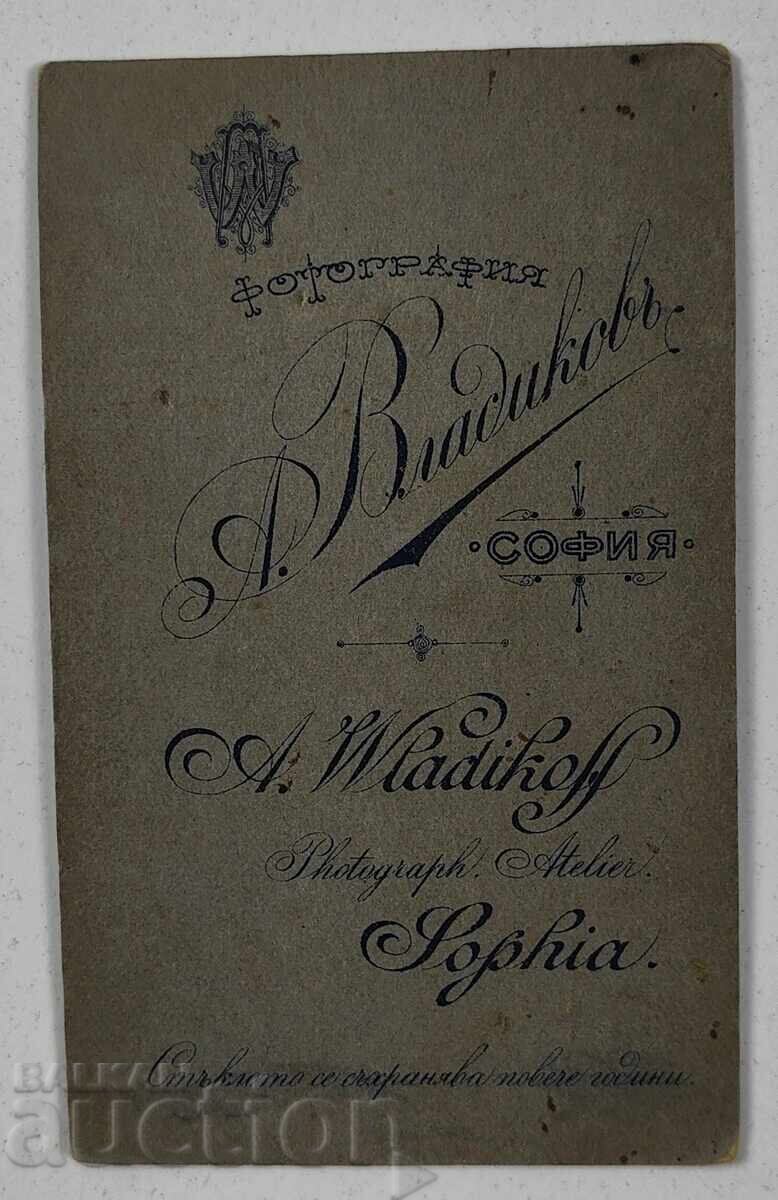 AW
ФОТОГРАФИЯ
А. Владиковъ
·СОФИЯ·
A. Wladikoff
Photograph. Atelier.
Sophia.
Стъклото се съхранява повече години.
BALKAN
auction